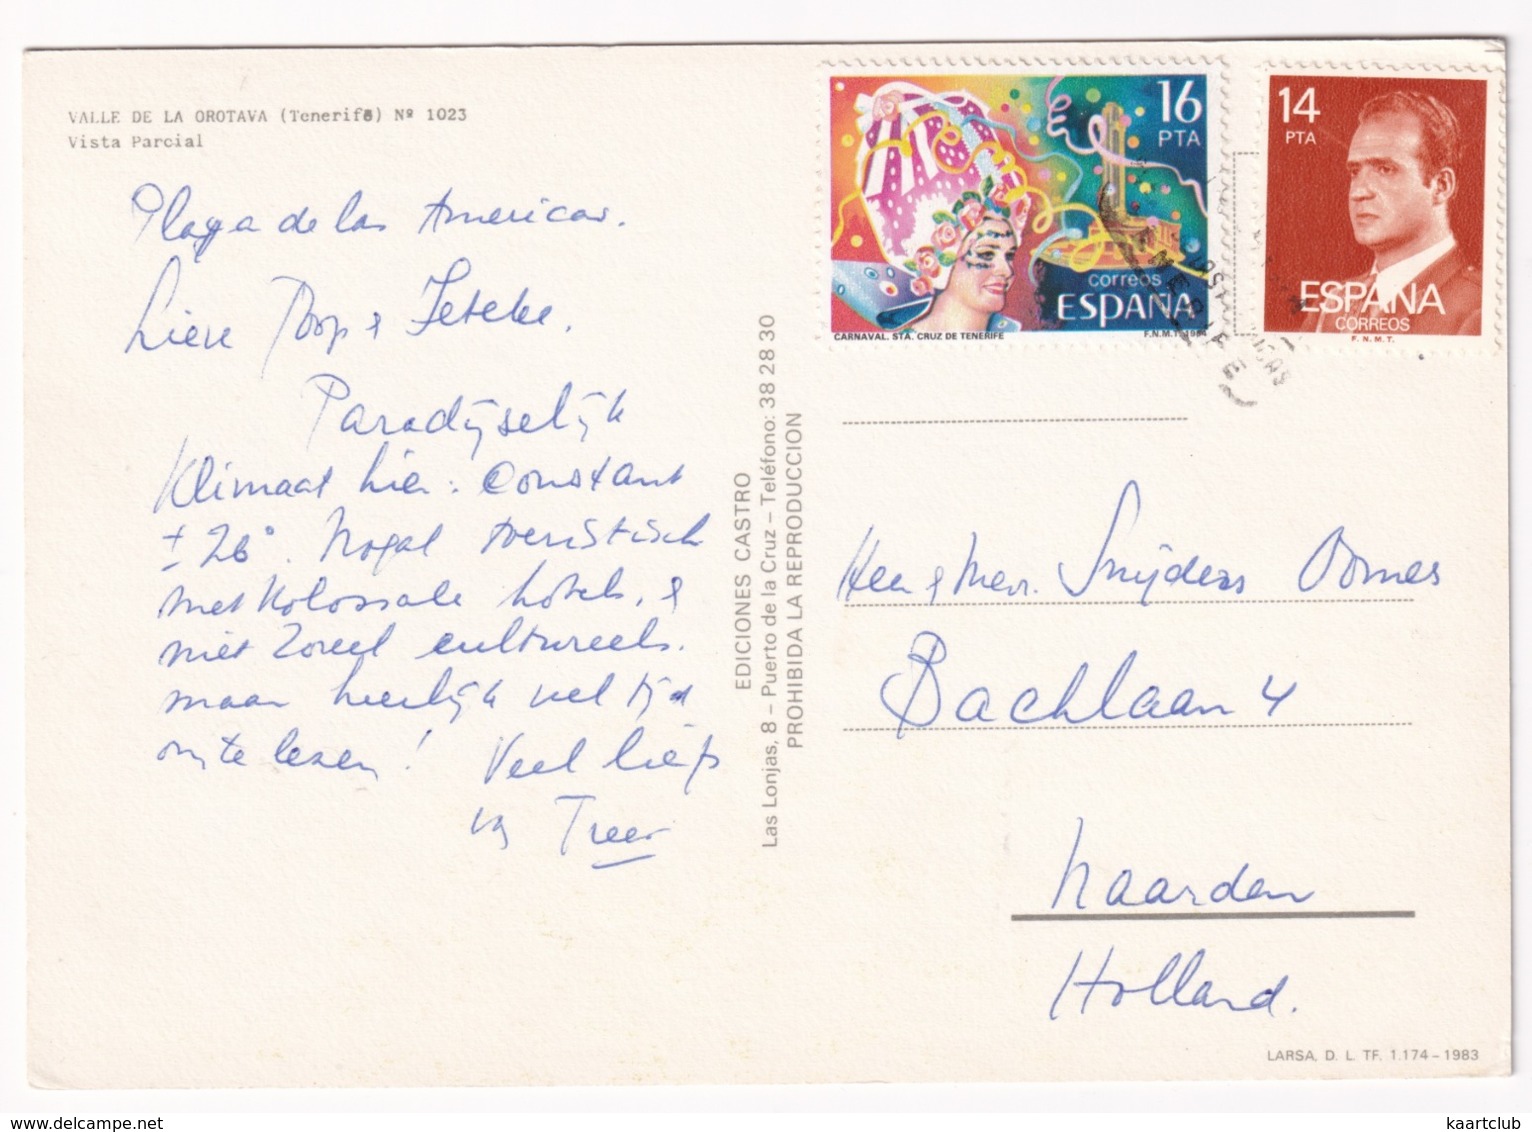 VALLE DE LA OROTAVA (Tenerife) Nº 1023
Vista Parcial
Playa de las Americas.
Lieve Joop &
Paradijselijk
Klimaat hier: Constant
± 26°. Nogal toeristisch
met Kolossale hotels, &
niet zoveel cultureels.
maar heerlijk veel tijd
om te lezen! Veel liefs
Treer
EDICIONES CASTRO
Las Lonjas, 8 – Puerto de la Cruz – Teléfono: 38 28 30
PROHIBIDA LA REPRODUCCION
16
PTA
correos
ESPAÑA
CARNAVAL. STA. CRUZ DE TENERIFE
F.N.M.T. 1984
14
PTA
ESPAÑA
CORREOS
F.N.M.T.
Heer & Mevr. Snijders Oomes
Bachlaan 4
Naarden
Holland.
LARSA, D. L. TF. 1.174 – 1983
www.delcampe.net
kaartclub